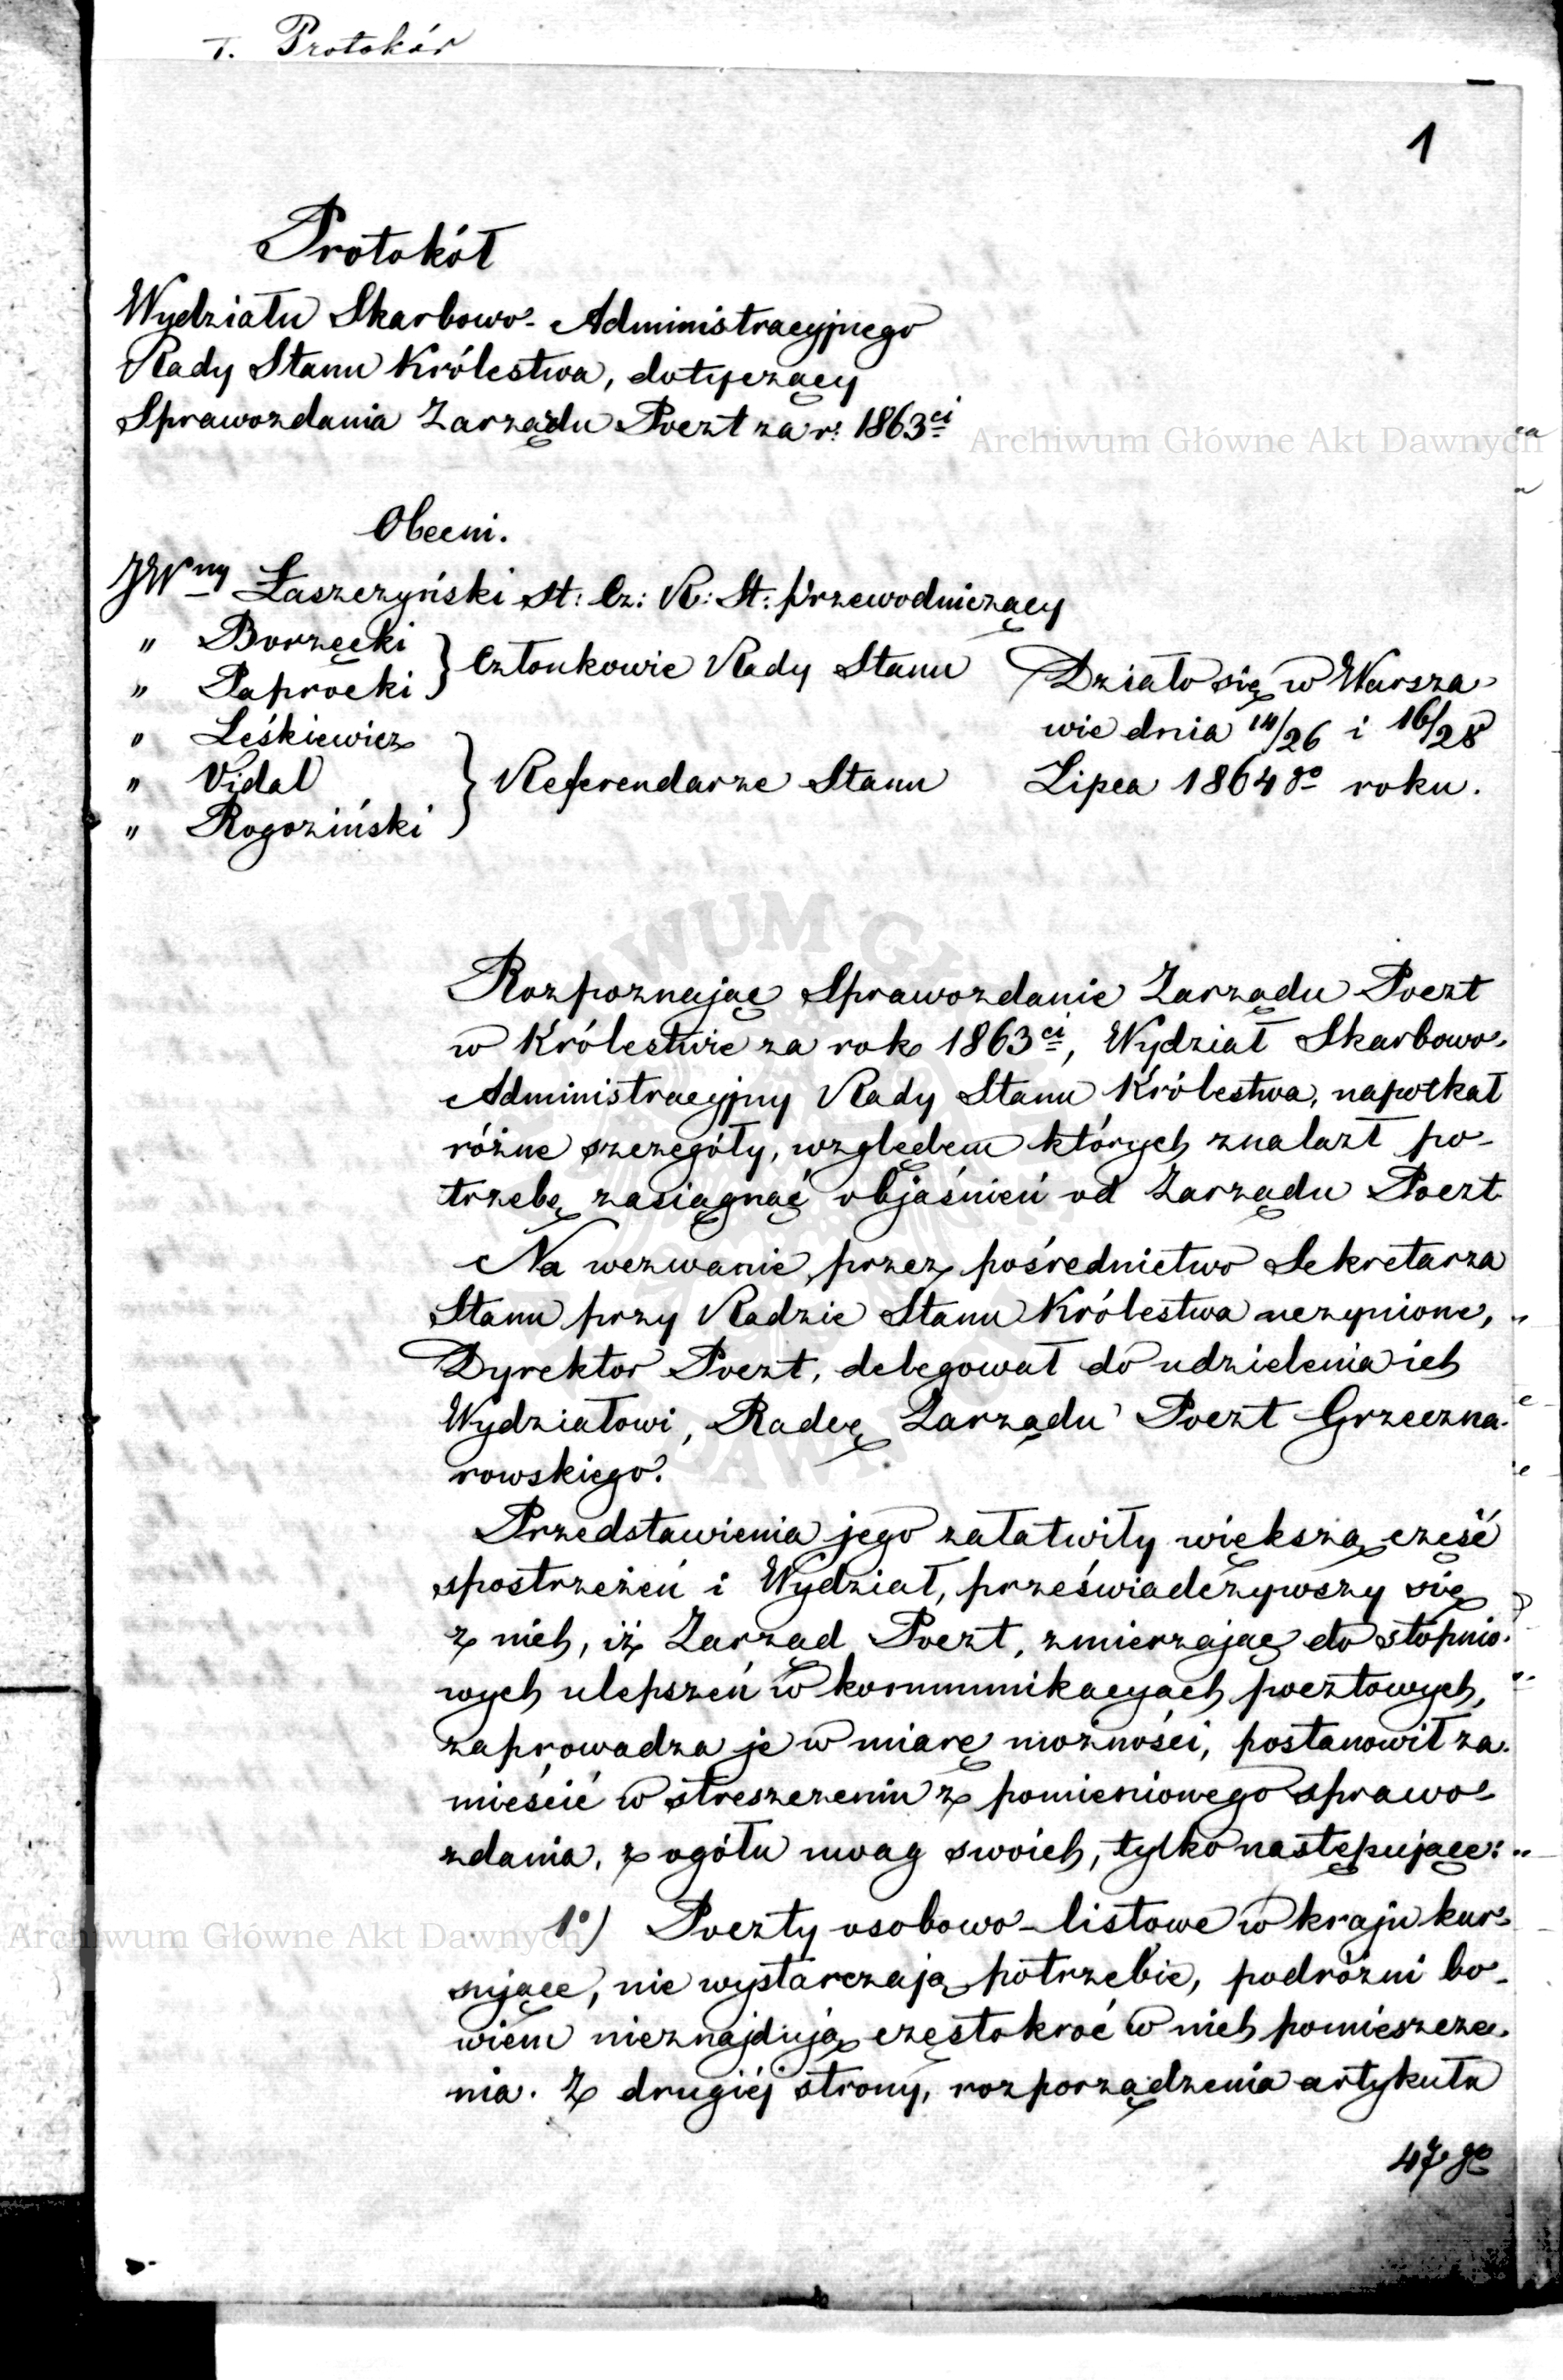 T. Protokół
1
Protokół
Wydziału Skarbowo-Administracyjnego
Rady Stanu Królestwa, dotyczący
Sprawozdania Zarządu Poczt za r: 1863ci
Archiwum Główne Akt Dawnych
Obecni.
JWny Łaszczyński St: Cz: R: St: Przewodniczący
" Borzęcki
" Paprocki
Członkowie Rady Stanu
" Leśkiewicz
" Vidal
" Rogoziński
Referendarze Stanu
Działo się w Warsza-
wie dnia 14/26 i 16/28
Lipca 1864go roku.
Rozpoznając Sprawozdanie Zarządu Poczt
w Królestwie za rok 1863ci, Wydział Skarbowo-
Administracyjny Rady Stanu Królestwa, napotkał
różne szczegóły, względem których znalazł po-
trzebę zasięgnąć objaśnień od Zarządu Poczt
Na wezwanie przez pośrednictwo Sekretarza
Stanu przy Radzie Stanu Królestwa uczynione,
Dyrektor Poczt, delegował do udzielenia ich
Wydziałowi, Radcę Zarządu Poczt Grzeczna-
rowskiego.
Przedstawienia jego załatwiły większą część
spostrzeżeń i Wydział, przeświadczywszy się
z nich, iż Zarząd Poczt, zmierzając do stopnio-
wych ulepszeń w kommunikacyach pocztowych,
zaprowadza je w miarę możności, postanowił za-
mieścić w streszczeniu z pomienionego sprawo-
zdania, z ogółu uwag swoich, tylko następujące:
1o) Poczty osobowo-listowe w kraju kur-
sujące, nie wystarczają potrzebie, podróżni bo-
wiem nieznajdują częstokroć w nich pomieszcze-
nia. Z drugiéj strony, rozporządzenia artykułu
47go
Archiwum Główne Akt Dawnych